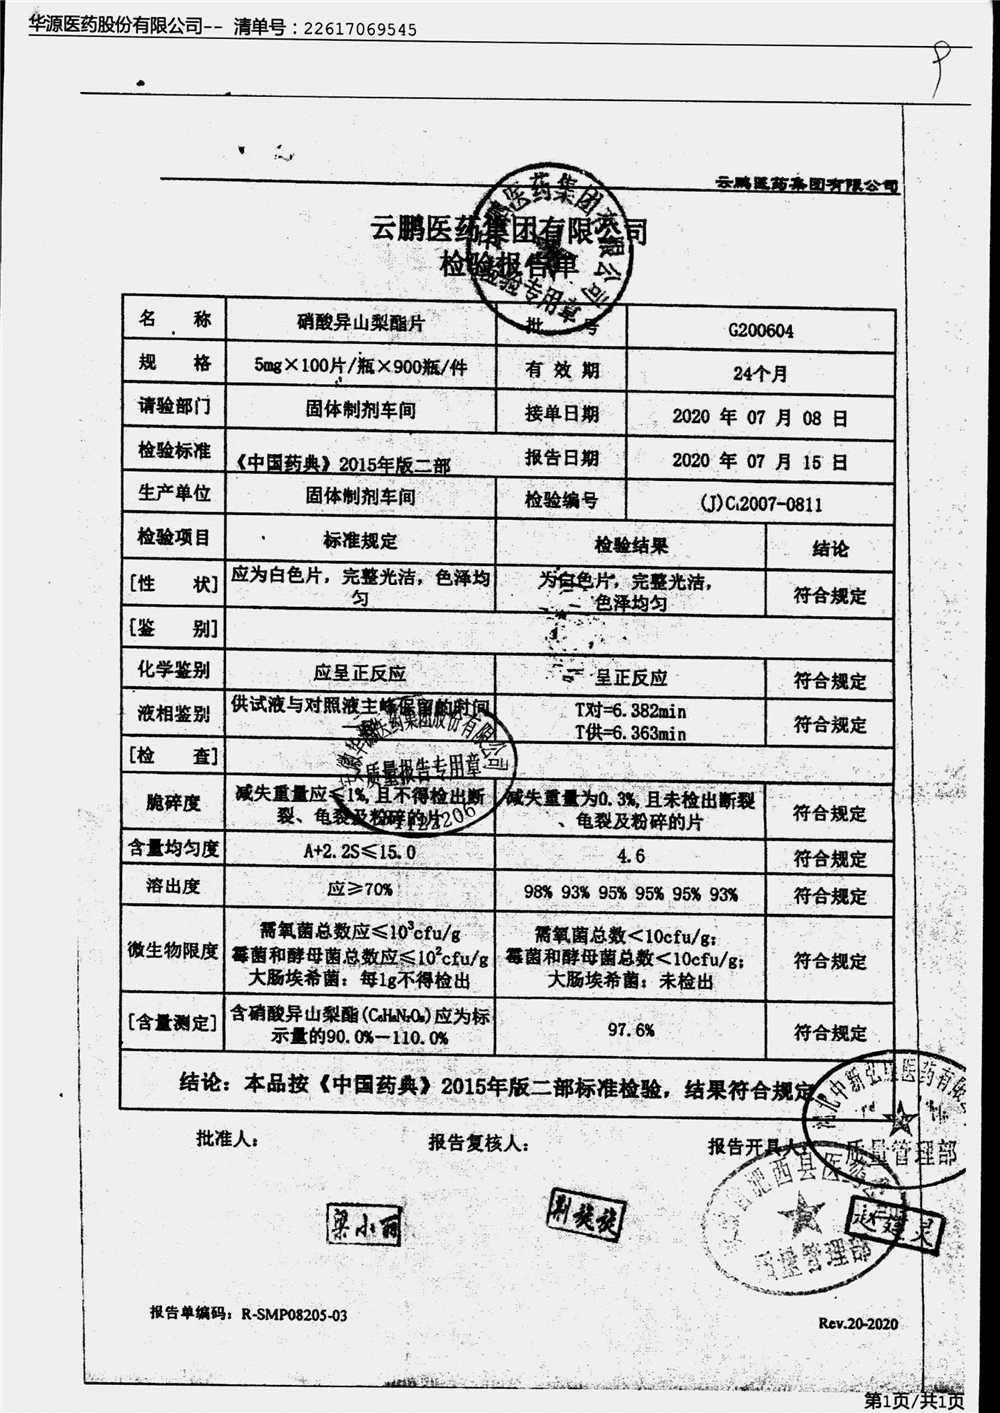 华源医药股份有限公司-- 清单号：22617069545
云鹏医药集团有限公司
云鹏医药集团有限公司
检验报告单
名 称 硝酸异山梨酯片 批 号 G200604
规 格 5mg×100片/瓶×900瓶/件 有 效 期 24个月
请验部门 固体制剂车间 接单日期 2020 年 07 月 08 日
检验标准 《中国药典》2015年版二部 报告日期 2020 年 07 月 15 日
生产单位 固体制剂车间 检验编号 (J)C₁2007-0811
检验项目 标准规定 检验结果 结论
[性 状] 应为白色片，完整光洁，色泽均 为白色片，完整光洁， 符合规定
匀 色泽均匀
[鉴 别]
化学鉴别 应呈正反应 呈正反应 符合规定
液相鉴别 供试液与对照液主峰保留的时间 T对=6.382min 符合规定
T供=6.363min
[检 查]
脆碎度 减失重量应≤1%,且不得检出断 减失重量为0.3%,且未检出断裂 符合规定
裂、龟裂及粉碎的片 、龟裂及粉碎的片
含量均匀度 A+2.2S≤15.0 4.6 符合规定
溶出度 应≥70% 98% 93% 95% 95% 95% 93% 符合规定
微生物限度 需氧菌总数应≤10³cfu/g 需氧菌总数＜10cfu/g; 符合规定
霉菌和酵母菌总数应≤10²cfu/g 霉菌和酵母菌总数＜10cfu/g;
大肠埃希菌：每1g不得检出 大肠埃希菌：未检出
[含量测定] 含硝酸异山梨酯(C₆H₈N₂O₈)应为标 97.6% 符合规定
示量的90.0%－110.0%
结论：本品按《中国药典》2015年版二部标准检验，结果符合规定
批准人： 报告复核人： 报告开具人：
梁小丽 荆旋旋 赵建灵
云鹏医药集团有限公司
检验专用章
华源医药集团股份有限公司
质量报告专用章
医药有限
质量管理部
肥西县医药
质量管理部
报告单编码：R-SMP08205-03
Rev.20-2020
第1页/共1页